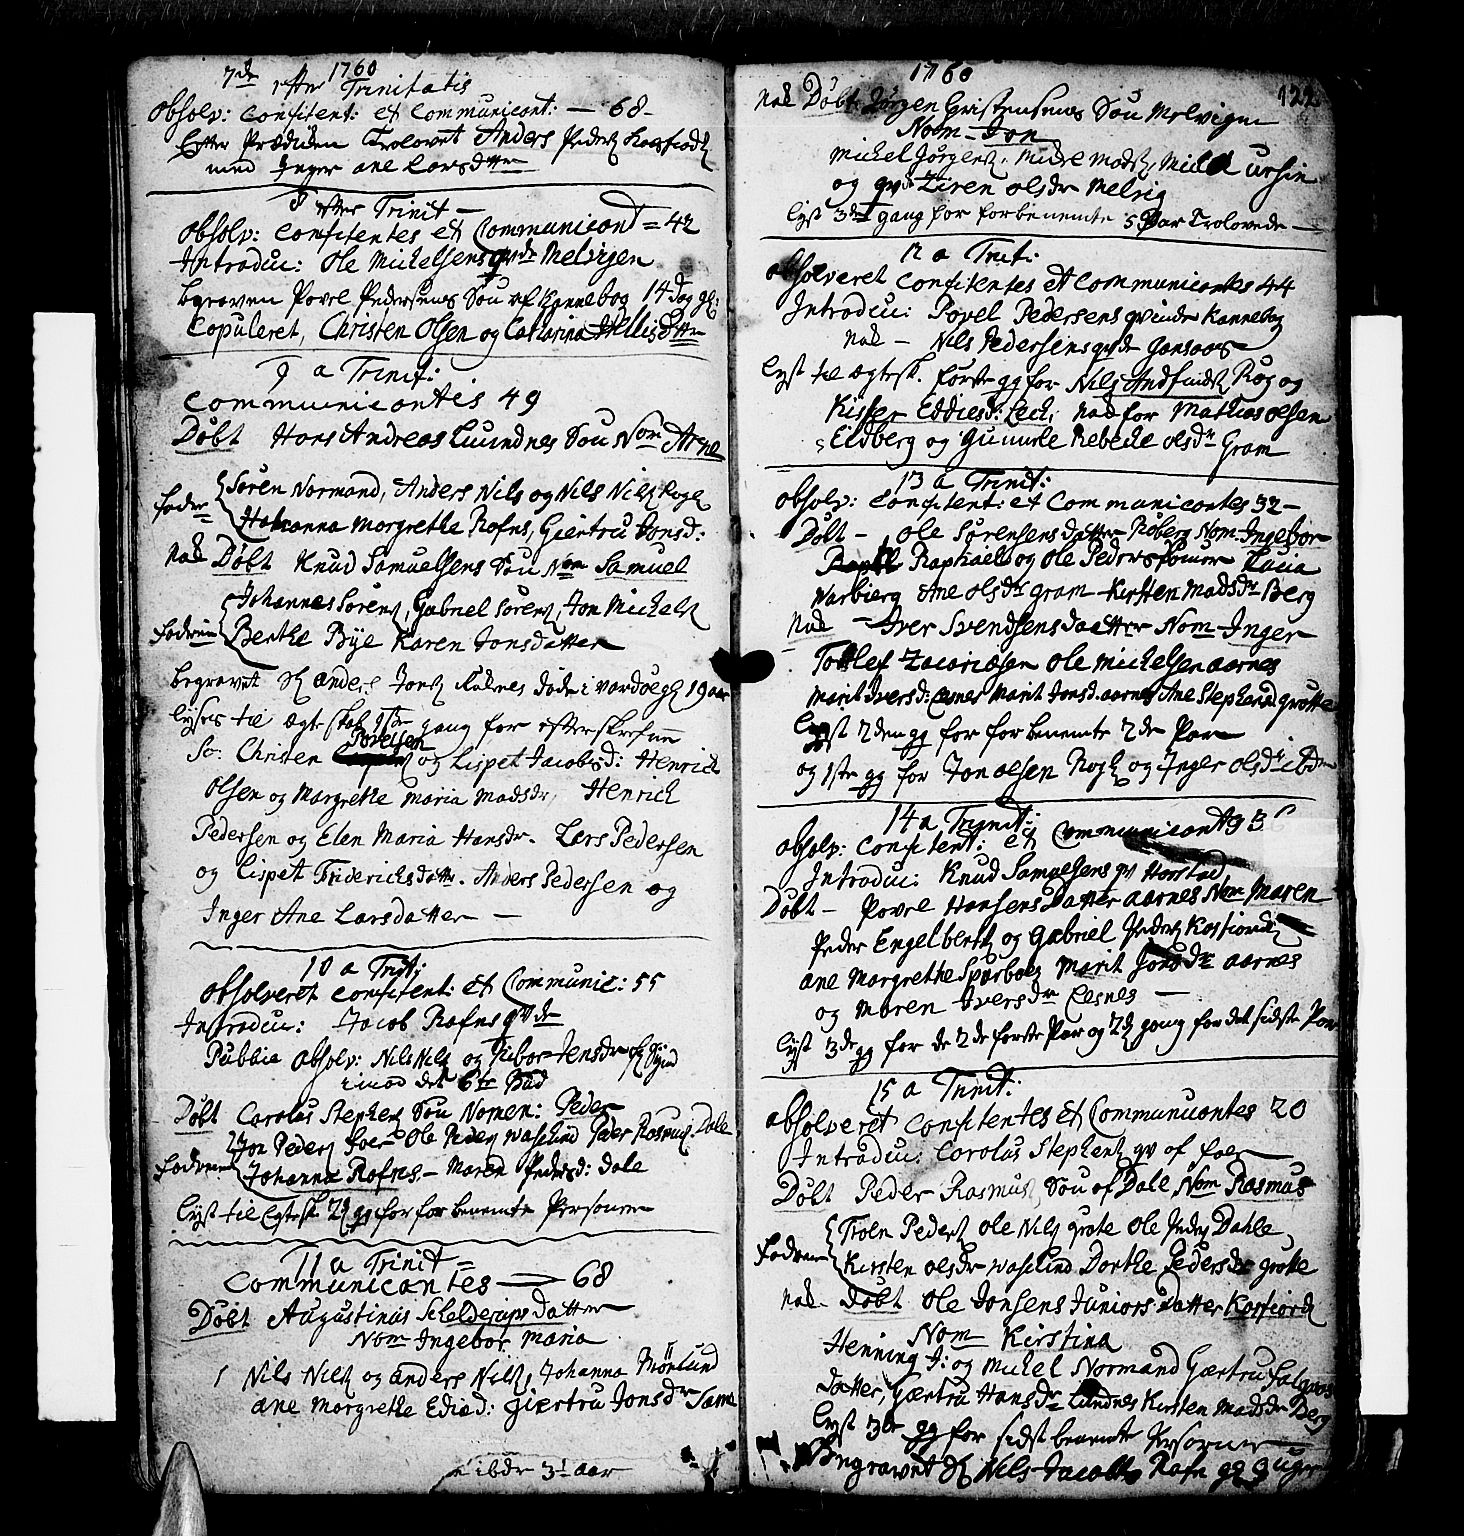 1760
7de efter Trinitatis
Absolv: Confitent: et Communicant: — 68 –
Efter Prædiken Trolovet Anders Peders
med Inger ane Larsdtter
8 efter Trinit –
Absolv: Confitentes et Communicant = 42
Introduc: Ole Michelsens qvde Melvigen
begraven Povel Pedersens Søn af Kannebog 14 dag gl:
Copuleret, Christen Olsen og Catharina
9 a Trinit:
Communicantes 49
Døbt Hans Andreas Lundnes Søn Nom Arne
Søren Normand, Anders Nils og Nils Nils
Fadre
Johanna Morgrethe Rafns, Giertru Jonsd:
Nok Døbt Knud Samuelsens Søn Nom Samuel
Johannes Sørens, Gabriel Sørens, Jon Michels
Fadrene
Berthe Bye Karen Jonsdatter
begravet Anders Jons døde i 19 aar
lyses til ægteskab 1ste gang for efterskrefne
So. Christen Povelsen og Lispet Jacobsd: Henrich
Olsen og Margrethe Maria Madsdr, Henrich
Pedersen og Elen Maria Hansdr. Lars Pedersen
og Lispet Friderichsdatter. Anders Pedersen og
Inger Ane Larsdatter —
10 a Trit:
Absolveret Confitent: et Communic: 55
Introduc: Jacob Rafns qvde
Publice absolv: Nils Nils og Jensdr
imod det 6te Bud
Døbt Carolus Stephens Søn Nomen: Peder
Jon Peders Ole Peders Waslund Peder Rasmus. Dale
Fadrene
Johanna Rafns – Maren Pedersd: Dale
lyst til Egtesk 2den gg for forbenemte Personer
11 a Trinit =
Communicantes — 68
Døbt Augustinus Schelderups datter
Nom Ingebor Maria
Nils Nils og Anders Nils, Johanna Mörlund
Ane Morgrethe Ediæd: Giærtru Jonsdr
31 aar
1760
122
Nok Døbt Jørgen Christensens Søn Melvigen
Nom – Jon
Michel Jørgens, Michel Mads, Michel Ursin
og qvd Ziren Olsdr Melvig
lyst 3die gang for forbenemte 5 Par Trolovede —
12 a Trit:
Absolveret Confitentes et Communicantes 44
Introduc: Povel Pedersens qvinde Kannebog
Nok – Nils Pedersens qvde
lyst til ægtesk. første gg for Nils og
Eddiesd: nok for Mathias Olsen
Eldberg og Gunnele Rebecke Olsdr Gram
13 a Trinit:
Absolv: Confitent: et Communicantes 32 –
Døbt – Ole Sørensens datter Nom Ingebor
Raphael og Ole Peders Lucia
Warbierg Ane Olsdr Gram – Kirsten Madsdr Berg
Nok – Iver Svendsens daatter Nom – Inger
Tollef Zacariæsen Ole Michelsen Aarnes
Marit Iversd: Marit Jonsd. Aarnes Ane Stephensd Grotte
lyst 2den gg for forbenemte 2de Par
og 1ste gg for Jon Olsen og Inger Olsdr ibdm
14 a Trinit:
Absolv: Confitent: et Communicantes 36
Introduc: Knud Samuelsens qv
Døbt – Povel Hansens Datter Aarnes Nom Maren
Peder Engelberth og Gabriel Peders Kosfiord
Ane Margrethe Marit Jonsdr Aarnes
og Maren Iversdr —
lyst 3de gg for de 2de første Par og 2den gang for det sidste Par
15 a Trinit:
Absolveret Confitentes et Communicantes 20
Introduc: Carolus Stephens qv af
Døbt Peder Rasmus Søn af Dale Nom Rasmus
Troen Peders Ole Nils Grote Ole Peders Dahle
Fadrene
Kirsten Olsdr Waslund Dorthe Pedersdr Grotte
Nok – Døbt Ole Jonsens Juniors Datter Kosfiord
Nom Kirstina
Henning J: og Michel Normand Giærtru
datter, Giærtru Hansdr Lundnes Kirsten Madsdr Berg
lyst 3de gg for sidst benemte Personer
Begravet Nils Jacobs Rafn 3 uger